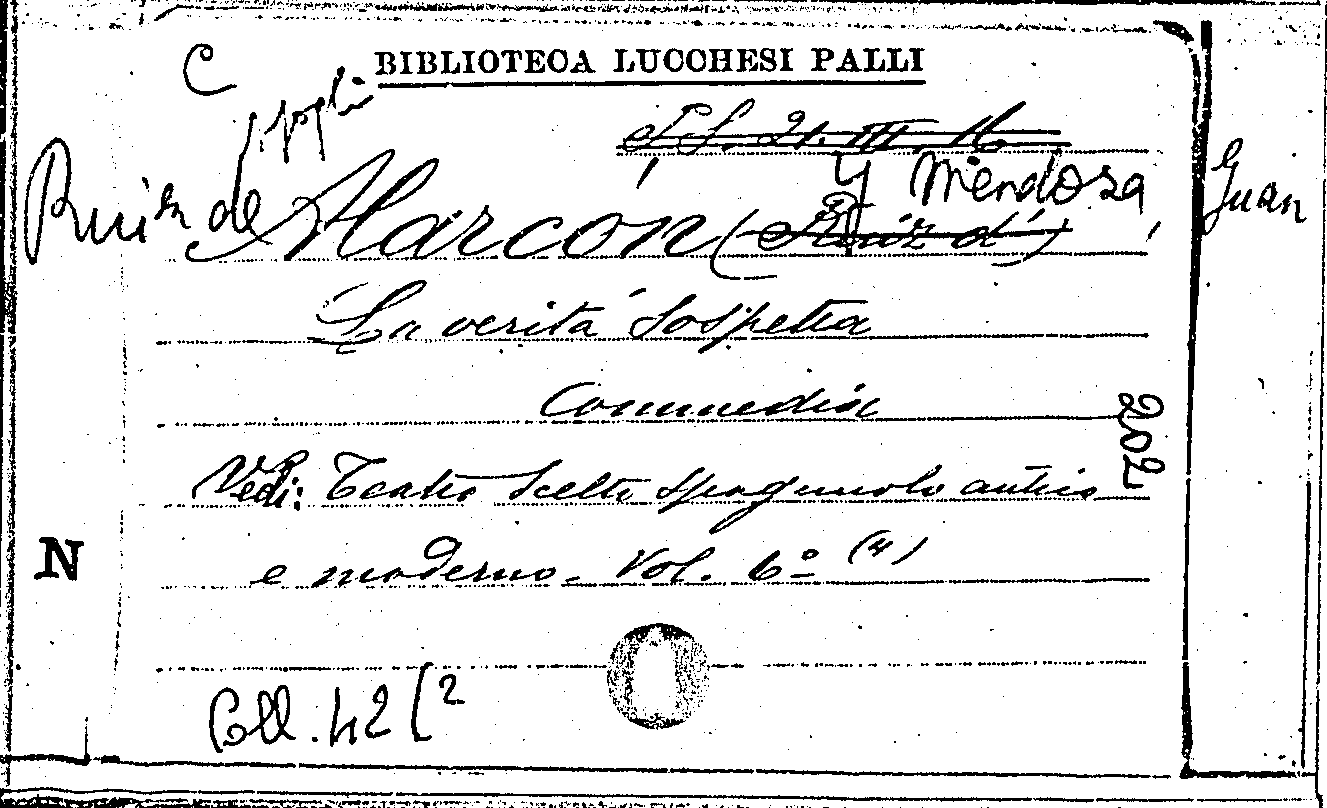 C
BIBLIOTECA LUCCHESI PALLI
21. III. 16
Ruiz de Alarcon (Ruiz d') y Mendoza, Juan
La verità sospetta
Commedia
202
Vedi: Teatro Scelto spagnuolo antico
e moderno. Vol. 6º (4)
N
Coll. 42 (2